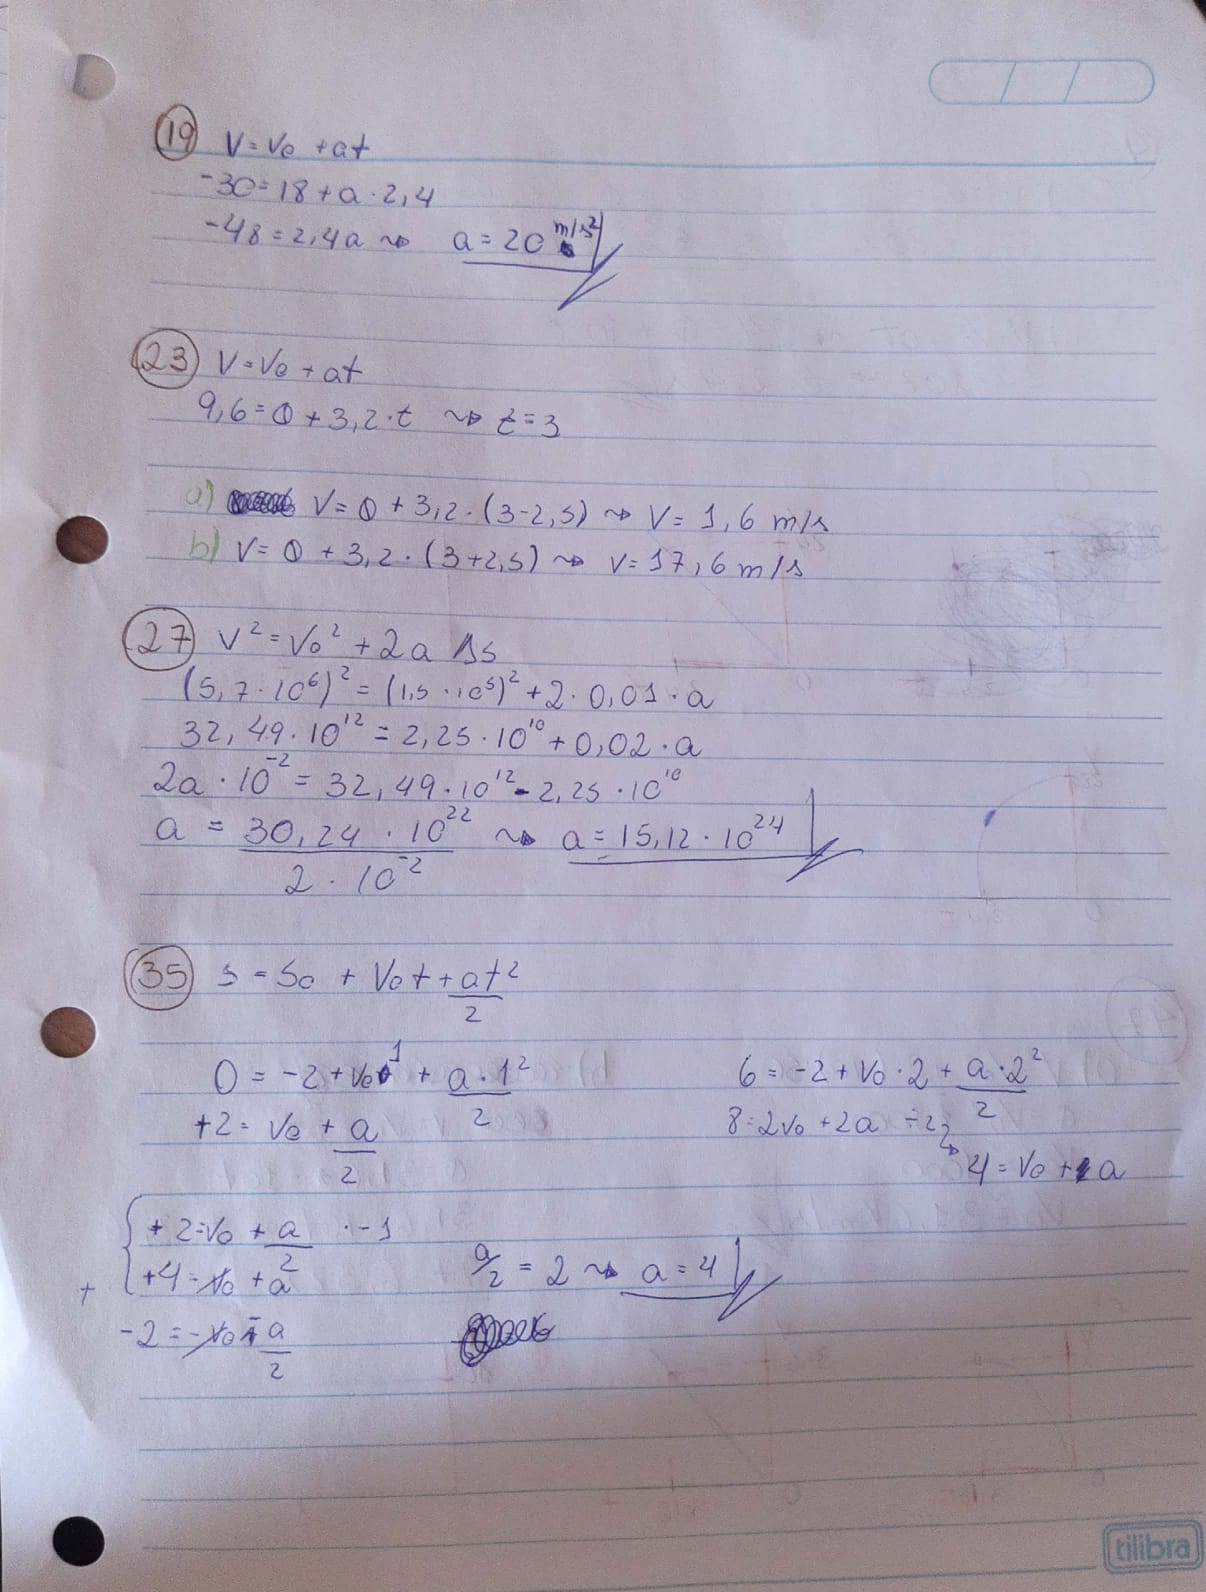 19 V = V0 + at
-30 = 18 + a · 2,4
-48 = 2,4a ⇝ a = 20 m/s²
23 V = V0 + at
9,6 = 0 + 3,2 · t ⇝ t = 3
a) V = 0 + 3,2 · (3 - 2,5) ⇝ V = 1,6 m/s
b) V = 0 + 3,2 · (3 + 2,5) ⇝ V = 17,6 m/s
27 V² = V0² + 2a Δs
(5,7 · 10⁶)² = (1,5 · 10⁵)² + 2 · 0,01 · a
32,49 · 10¹² = 2,25 · 10¹⁰ + 0,02 · a
2a · 10⁻² = 32,49 · 10¹² - 2,25 · 10¹⁰
a = 30,24 · 10²² / 2 · 10⁻² ⇝ a = 15,12 · 10²⁴
35 s = s0 + V0t + at²/2
0 = -2 + V0 · 1 + a · 1²/2
+2 = V0 + a/2
6 = -2 + V0 · 2 + a · 2²/2
8 = 2V0 + 2a ÷2
4 = V0 + a
+2 = V0 + a/2 · -1
+ +4 = V0 + a
-2 = -V0 - a/2
a/2 = 2 ⇝ a = 4
tilibra